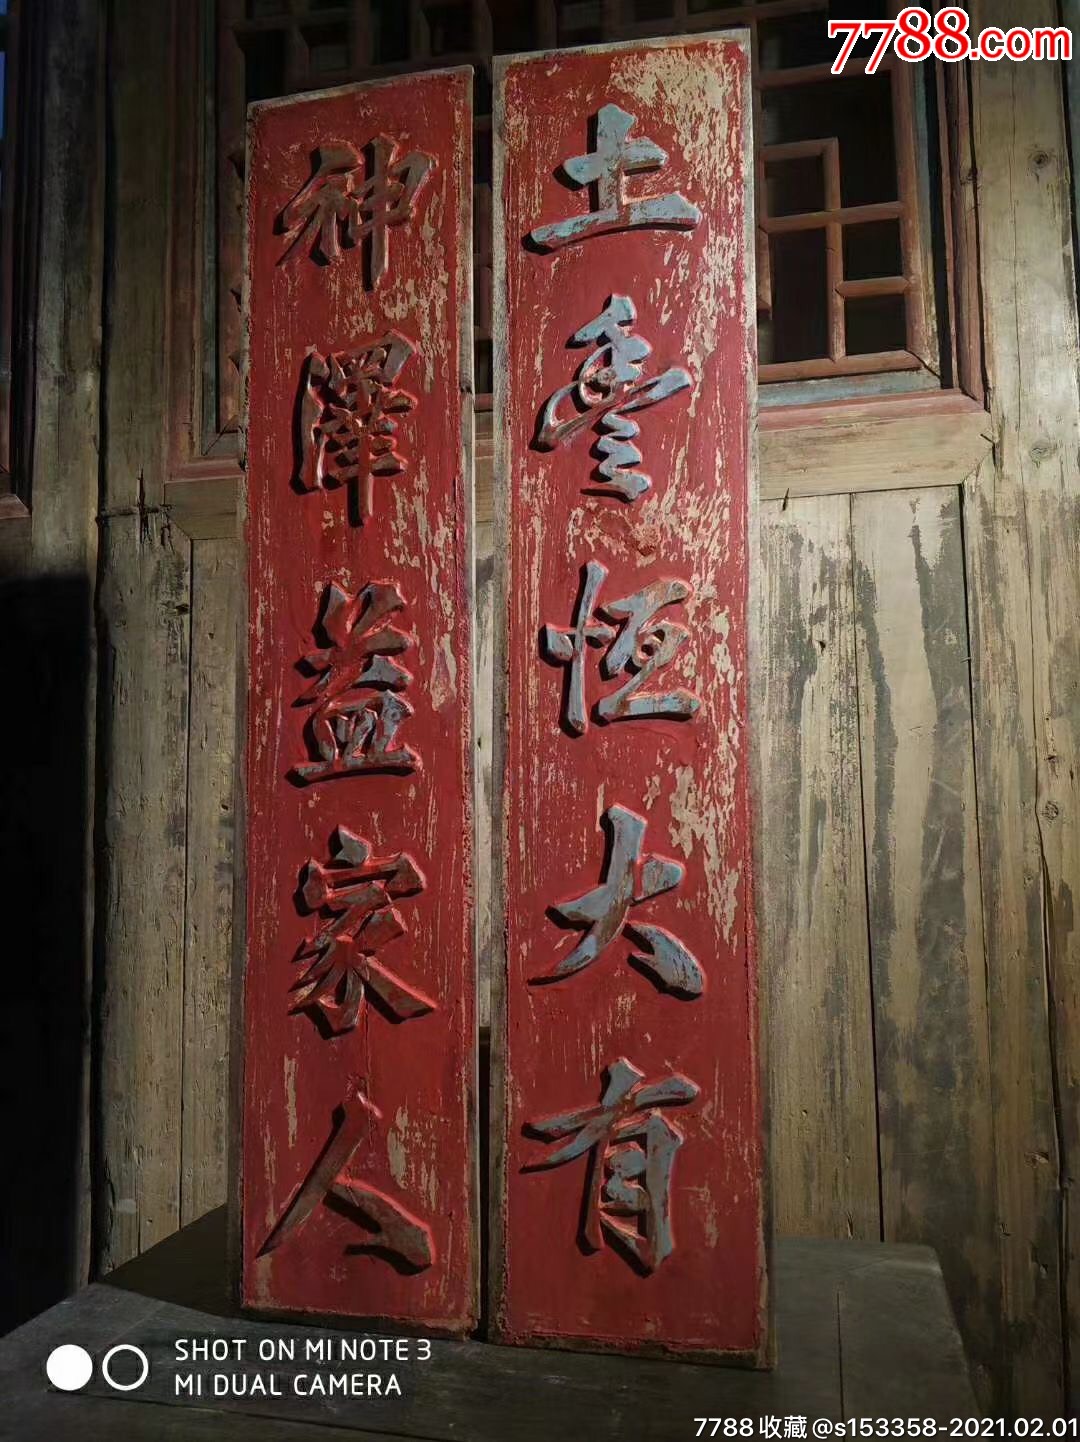 土恒大有
神澤益家人
7788.com
SHOT ON MI NOTE 3
MI DUAL CAMERA
7788收藏@s153358-2021.02.01